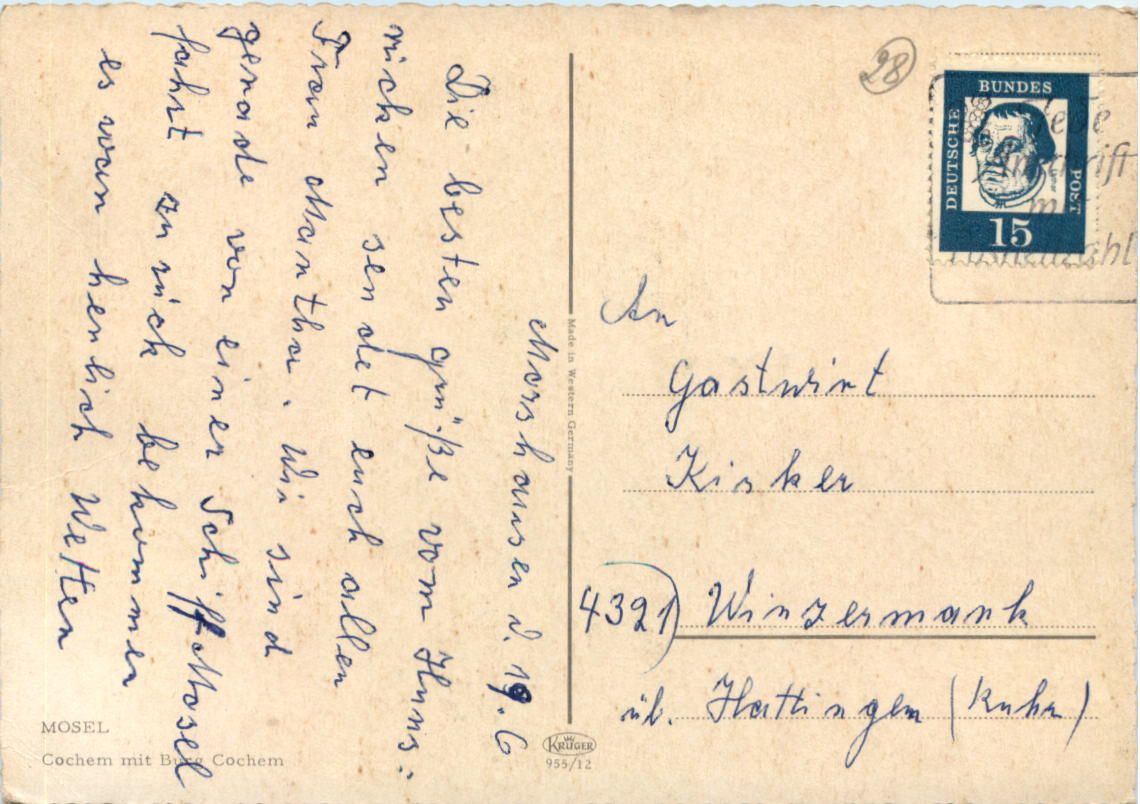 Morshausen d. 19. 6
Die besten grüße vom Huns:
rücken sendet euch allen
Frau Martha. Wir sind
gerade von einer Schiff Mosel
fahrt zurück bekommen
es war herrlich Wetter
MOSEL
Cochem mit Burg Cochem
Made in Western Germany
KRÜGER
955/12
28
DEUTSCHE BUNDESPOST
15
In jede
Anschrift
mit
An
Gastwirt
Kisker
4321) Winzermark
üb. Hattingen (Ruhr)